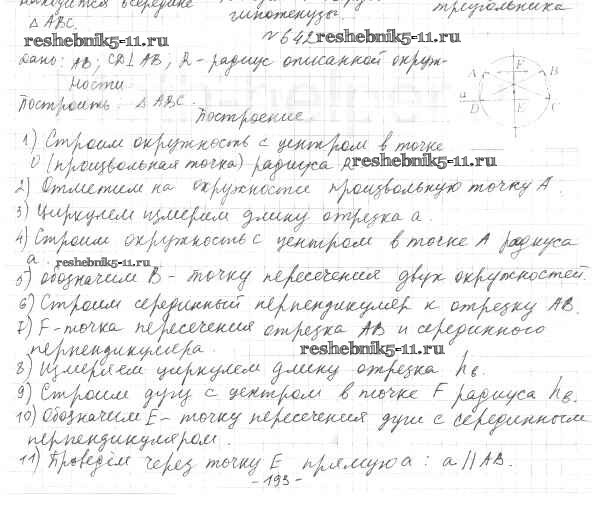 находится всередине
гипотенузы.
треугольника
△ ABC.
reshebnik5-11.ru
№642
reshebnik5-11.ru
Дано: AB; CD⊥AB, R - радиус описанной окруж-
ности.
Построить: △ABC.
Построение.
A
F
B
a
E
D
C
1) Строим окружность с центром в точке
O (произвольная точка) радиуса R
reshebnik5-11.ru
2) Отметим на окружности произвольную точку A.
3) Циркулем измерим длину отрезка a.
4) Строим окружность с центром в точке A радиуса
a.
reshebnik5-11.ru
5) Обозначим B - точку пересечения двух окружностей.
6) Строим серединный перпендикуляр к отрезку AB.
7) F - точка пересечения отрезка AB и серединного
перпендикуляра.
reshebnik5-11.ru
8) Измеряем циркулем длину отрезка hв.
9) Строим дугу с центром в точке F радиуса hв.
10) Обозначим E - точку пересечения дуги с серединным
перпендикуляром.
11) Проведём через точку E прямую a : a // AB.
- 193 -